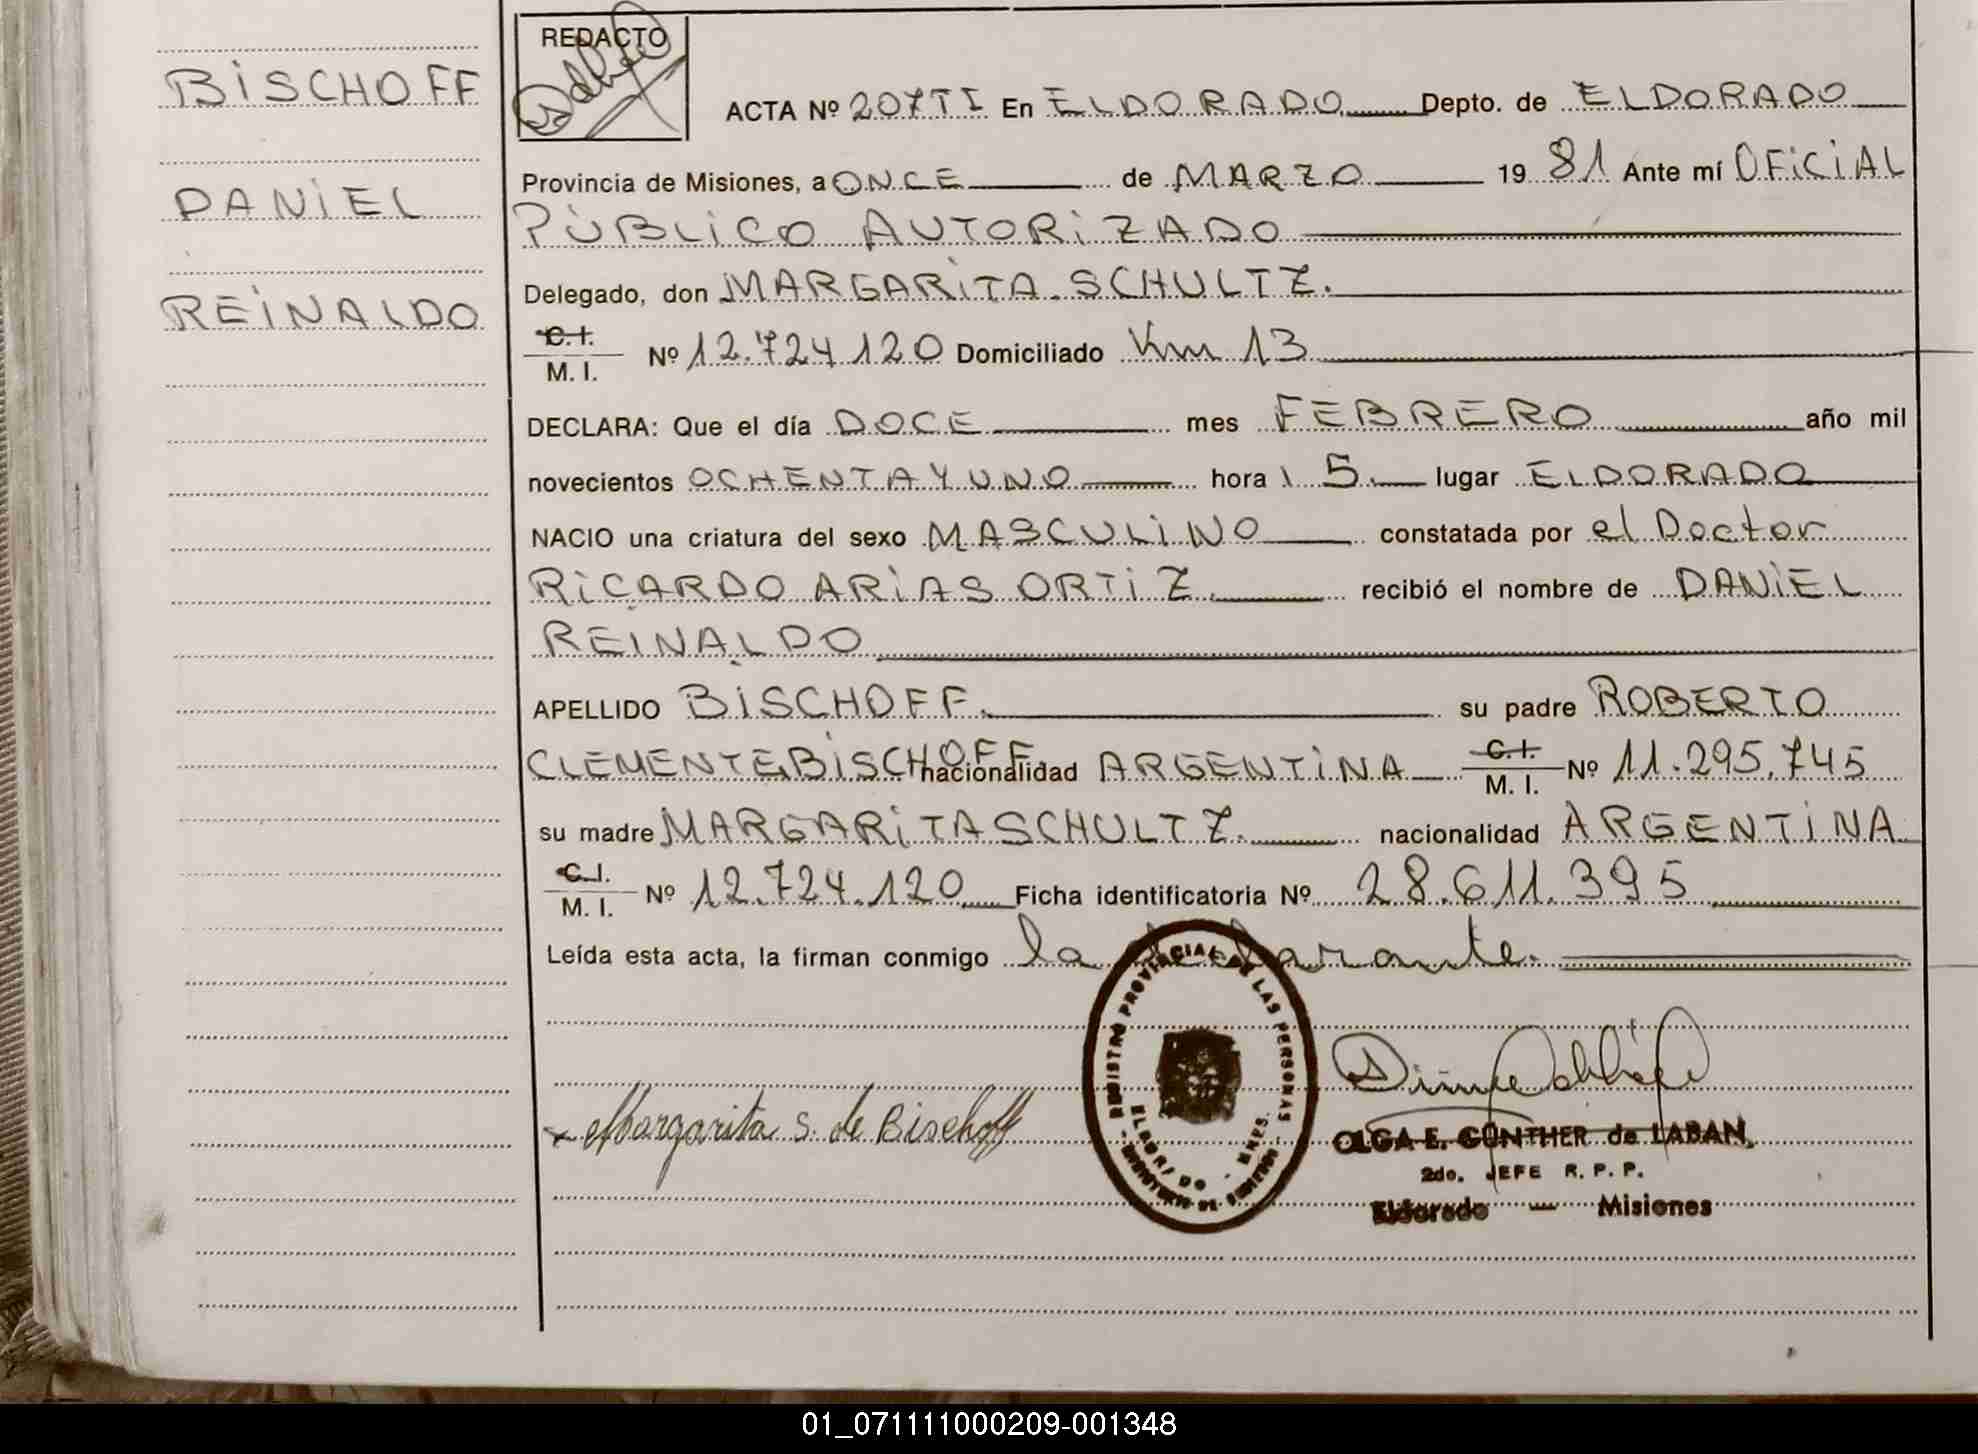 BISCHOFF
DANIEL
REINALDO
REDACTO
ACTA Nº 207TI En ELDORADO Depto. de ELDORADO
Provincia de Misiones, a ONCE de MARZO 1981 Ante mí OFICIAL
PÚBLICO AUTORIZADO
Delegado, don MARGARITA SCHULTZ.
C.I.
M. I. Nº 12.724120 Domiciliado Km 13
DECLARA: Que el día DOCE mes FEBRERO año mil
novecientos OCHENTA Y UNO hora 15. lugar ELDORADO
NACIO una criatura del sexo MASCULINO constatada por el Doctor
RICARDO ARIAS ORTIZ. recibió el nombre de DANIEL
REINALDO
APELLIDO BISCHOFF. su padre ROBERTO
CLEMENTE BISCHOFF. nacionalidad ARGENTINA C.I. M. I. Nº 11.295.745
su madre MARGARITA SCHULTZ. nacionalidad ARGENTINA
C.I.
M. I. Nº 12.724.120 Ficha identificatoria Nº 28.611.395
Leída esta acta, la firman conmigo la declarante.
REGISTRO PROVINCIAL DE LAS PERSONAS
ELDORADO - MNES.
Margarita S. de Bischoff
OLGA E. GÜNTHER de LABAN
2do. JEFE R. P. P.
Eldorado — Misiones
01_071111000209-001348